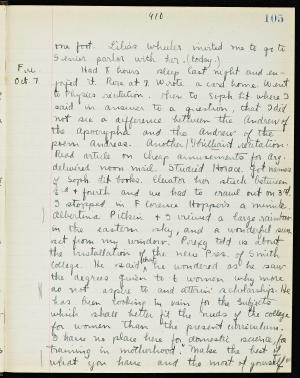 910
105
one foot. Lilias Wheeler invited me to go to
Senior parlor with her. (today.)
Fri. Had 8 hours sleep last night and en-
Oct. 7. joyed it. Rose at 7. Wrote a card home. Went
to Physics recitation. Then to Soph Lit where I
said in answer to a question, that I did
not see a difference between the Andrew of
the Apocrypha and the Andrew of the
poem Andreas. Another brilliant recitation.
Read article on cheap amusements for arg.
delivered noon mail. Studied Horace. Got names
of Soph Lit books. Elevator stuck between
3rd & fourth and we had to crawl out on 3rd.
I stopped in Florence Hopper's a minute.
Albertina Pitkin & I viewed a large rainbow
in the eastern sky, and a wonderful sun
set from my window. Prexy told us about
the installation of the new Pres. of Smith
College. He said that he wondered as he saw
the degrees given to 6 women why more
do not aspire to and attain scholarships. He
has been looking in vain for the subjects
which shall better fit the needs of the college
for women than the present curriculum.
I have no place here for domestic science, for
training in motherhood." Make the best of
what you have and the most of yourself